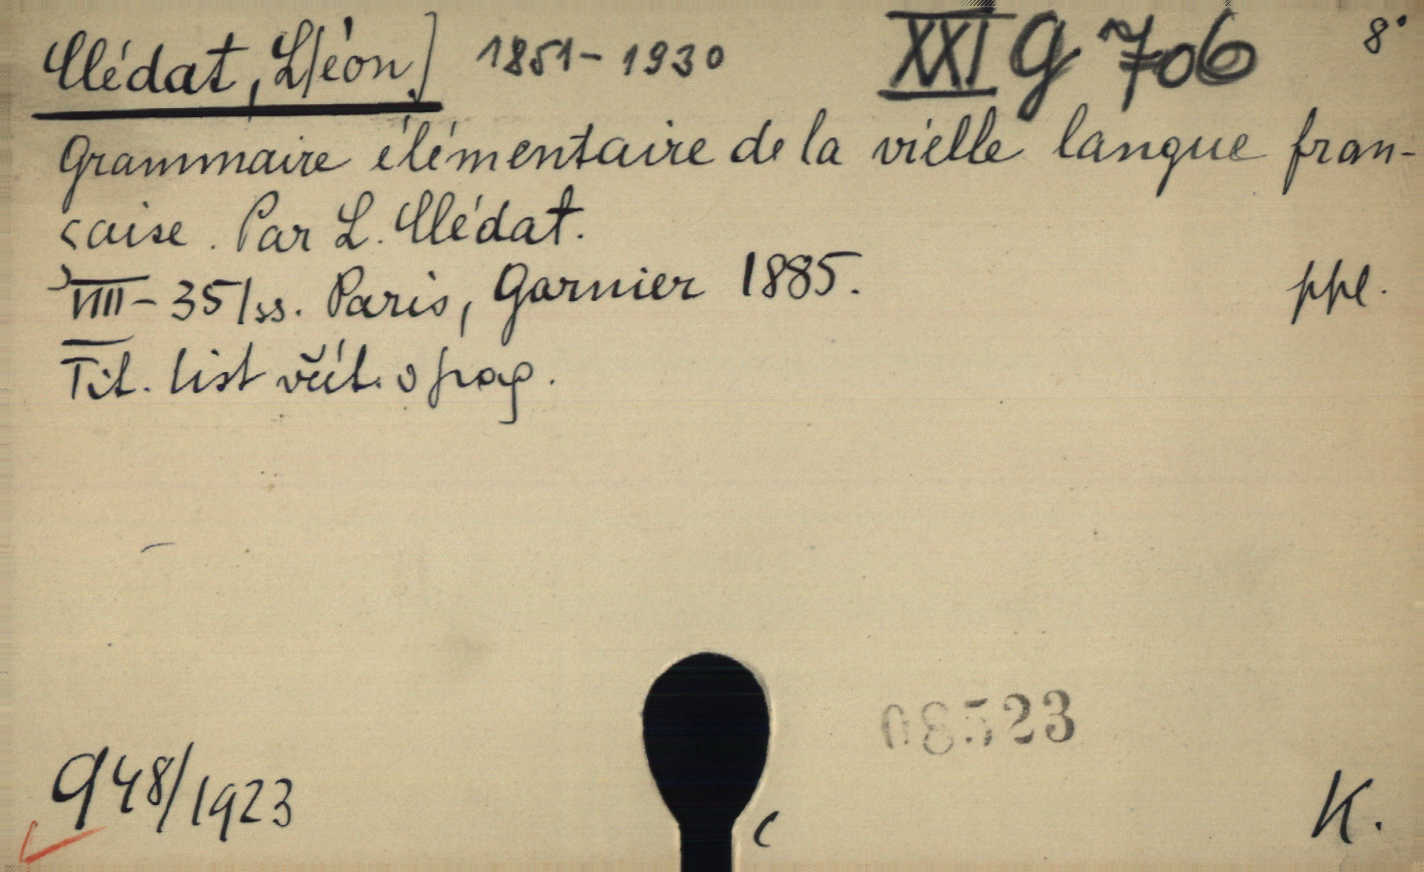 Clédat, L[éon] 1851-1930 XXI G 706 8°
Grammaire élémentaire de la vielle langue fran-
çaise. Par L. Clédat.
VIII - 351 ss. Paris, Garnier 1885. ppl.
Tit. list včít. v pag.
08523
948/1923
K.
C